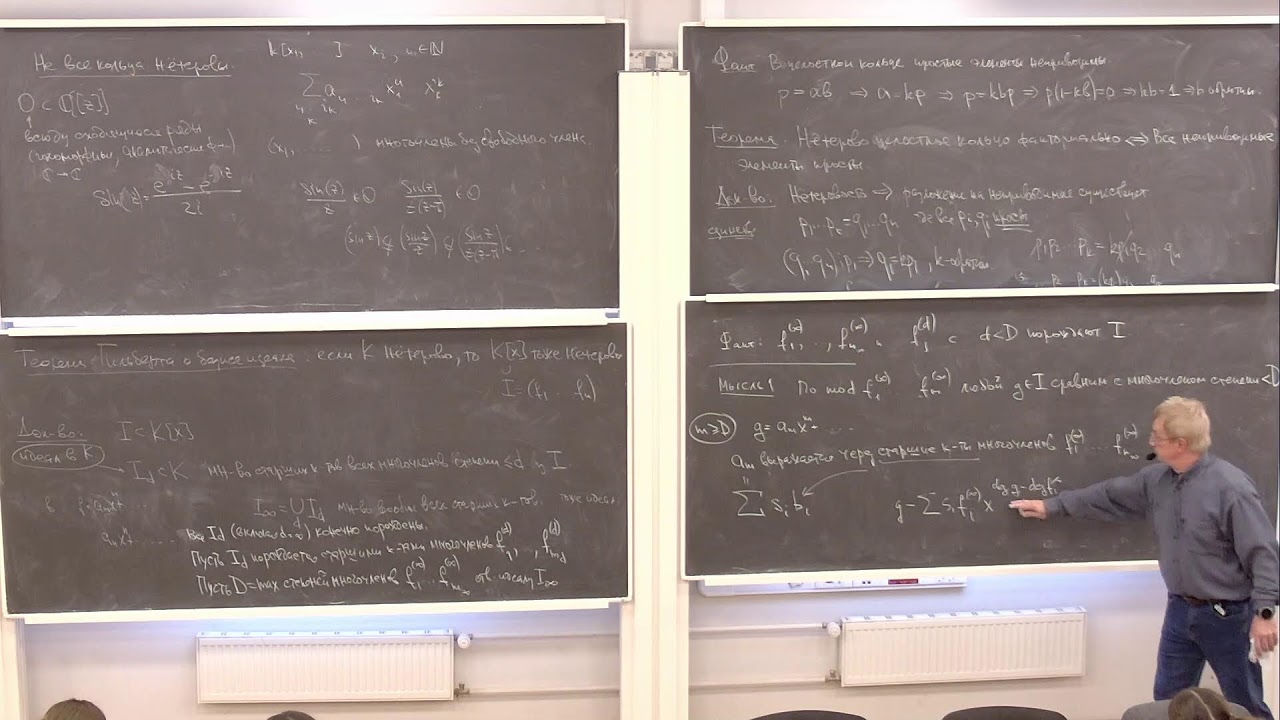 Не все кольца нётеровы.
k[x₁, ] xᵢ, i ∈ ℕ
O ⊂ ℂ[[z]]
всюду сходящиеся ряды
(голоморфные, аналитические ф-ии)
ℂ → ℂ
(x₁, ..... ) многочлены без свободного члена.
sin(z) = (e^{iz} − e^{−iz})/2i
sin(z)/z ∈ O sin(z)/z(z−π) ∈ O
(sin z) ⊊ (sin z/z) ⊊ (sin z/z(z−π)) ⊊ ...
Теорема Гильберта о базисе идеала: если K Нётерово, то K[x] тоже нётерово
I = (f₁ ... fₙ)
Док-во: I < K[x]
идеал в K
I_d ⊂ K мн-во старших к-тов всех многочленов степени ≤ d из I
I_∞ = ∪ I_d мн-во вообще всех старших к-тов. тоже идеал.
Все I_d (включая d=∞) конечно порождены.
Пусть I_d порождается старшими к-тами многочленов f₁^{(d)}, ..., f_{m_d}^{(d)}
Пусть D = max степеней многочленов f₁^{(∞)} ... f_{m_∞}^{(∞)} отв. идеалу I_∞
Факт: В целостном кольце простые элементы неприводимы.
p = ab ⇒ a = kp ⇒ p = kbp ⇒ p(1−kb) = 0 ⇒ kb = 1 ⇒ b обратим.
Теорема. Нётерово целостное кольцо факториально ⇔ Все неприводимые
элементы просты.
Док-во: Нётеровость ⇒ разложение на неприводимые существует
p₁...p_k = q₁...qₙ где все pᵢ, qᵢ просты
(q₁...qₙ) ⋮ p₁ ⇒ q₁ = kp₁, k-обратим
p₁p₂...p_k = kp₁q₂...qₙ
Факт: f₁^{(∞)}, ..., f_{m_∞}^{(∞)} и f_j^{(d)} с d<D порождают I
Мысль! По mod f₁^{(∞)} ... f_m^{(∞)} любой g ∈ I сравним с многочленом степени < D
m ≥ D g = a_m x^m + ...
a_m выражается через старшие к-ты многочленов f₁^{(∞)} ... f_{m_∞}^{(∞)}
∑ sᵢbᵢ g − ∑ sᵢfᵢ^{(∞)} x^{deg g − deg fᵢ}